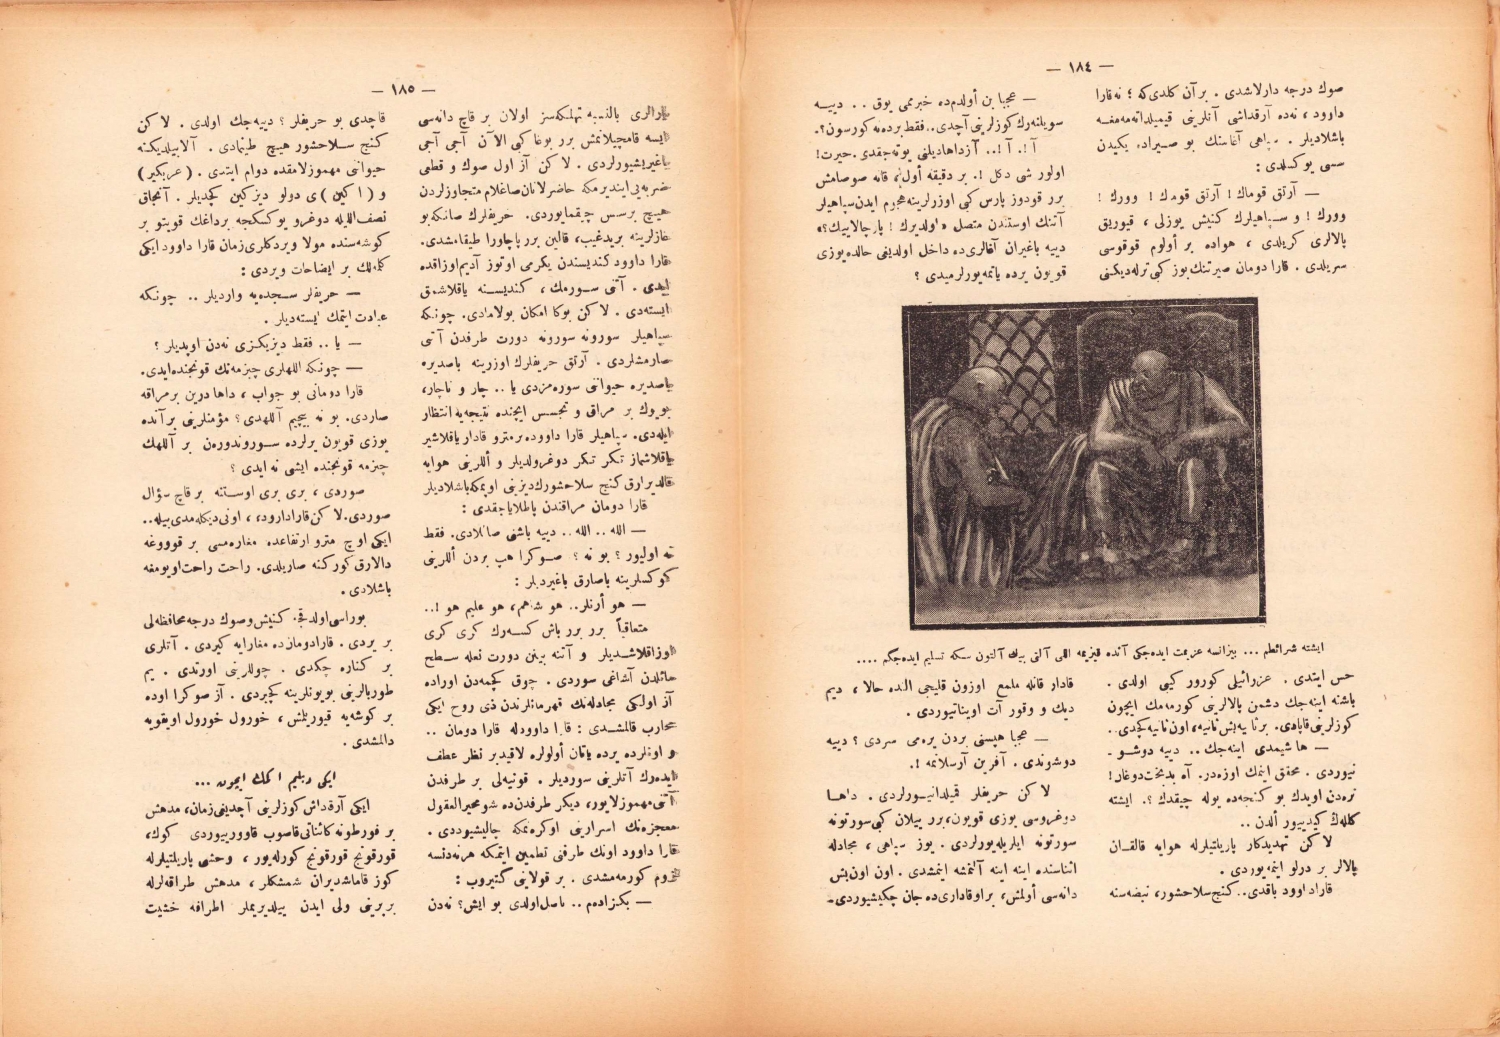 — ١٨٤ —
صوك درجه دارلاشدی . برآن كلدی‌كه ؛ نه‌قارا
داوود ، نه‌ده آرقداشی آتلرینی قیمیلداته‌مه‌مغه
باشلادیلر . سپاهی آغاسنك بو صیراده یكیدن
سسی یوكسلدی :
— آرتق قومك ! آرتق قومك ! وورك !
وورك ! و سپاهیلرك كنیش یوزلی ، قیوریق
پالالری كریلدی ، هواده بر أولوم قوقوسی
سریلدی . قارا دومان صیرتنك بوز كبی ترله‌دیكنی
— عجبا بن أولدم‌ده خبرمی یوق . . دییه
سویلنه‌رك كوزلرینی آچدی.. فقط برده‌نه كورسون؟.
آ !. آ !.. آزداهادیلنی یوته‌جقدی.حیرت!
اولور شی دكل !. بر دقیقه أول ، قانه صوصامش
برر قودوز پارس كبی اوزرلرینه‌هجوم ایدن‌سپاهیلر
آتنك اوستندن متصل « اولدیرك ! پارچالاییك ؟»
دییه باغیران آغالری‌ده داخل اولدیغی حالده‌یوزی
قویون یرده یاتمه‌یورلرمیدی ؟
ایشته شرائطم ... بیزانسه عزیمت ایده‌جكی آنده قیزیمه اللی آلتی بیك آلتون سكه تسلیم ایده‌جگم ....
حس ایتدی . عزرائیلی كورور كیبی اولدی .
باشنه اینه‌جك دشمن پالالرینی كورمه‌مك ایچون
كوزلرینی‌قاپادی. برثانیه‌بش‌ثانیه، اون‌ثانیه‌كچدی..
— ها شیمدی اینه‌جك.. دییه دوشو ـ
نیوردی . محقق اینمك اوزه‌در. آه بدبخت‌دوغار!
نره‌دن اویدك بو كنجه‌ده بوله چیقدك ؟. ایشته
كله‌ك كیدییور ألدن ..
لا كن تهدیدكار پاریلتیلرله هوایه قالقان
پالالر بر درلو اینمه‌یوردی .
قاراد اوود باقدی.. كنج‌سلاحشور، نبضه‌سنه
قادار قانله ملمع اوزون قلیجی الده حالا ، دیم
دیك و وقور آت اویناتیوردی .
— عجبا هپسنی بردن یره‌می سردی ؟ دییه
دوشوندی . آفرین آرسلانمه !.
لا كن حریفلر قیلدانیورلردی . داها
دوغروسی یوزی قویون،برر ییلان كبی‌سورتونه
سورتونه ایلریله‌یورلردی . یوز سپاهی ، مجادله
اثناسنده اینه اینه آلتمشه اینمشدی . اون اون‌بش
دانه‌سی أولمش، براوقاداری‌ده جان چكیشیوردی.
— ١٨٥ —
یارالری بالنسبه تهلكه‌سز اولان بر قاچ دانه‌سی
ایسه قامچیلانمش برر بوغا كبی الآن آجی آجی
باغیریشیورلردی . لا كن آز اول صوك و قطعی
ضربه‌یی‌ایندیرمكه حاضرلانان‌صاغلام متجاوزلردن
هیچ برسس چیقمایوردی. حریفلرك صانكه‌بو
غازلرینه بریدغیب، قالین برر پاچاورا طیقامشدی.
قارا داوودكندیسندن یكرمی اوتوز آدیم‌اوزاقده
ایدی . آتنی سورمك ، كندیسنه یاقلاشمق
ایسته‌دی . لا كن بوكا امكان بولامادی. چونكه
سپاهیلر سورونه سورونه دورت طرفدن آتی
صارمشلردی . آرتق حریفلرك اوزرینه باصدیره
باصدیره حیوانی سوره‌مزدی یا .. چار و ناچار،
بویوك بر مراق و تجسس ایچنده نتیجه‌یه‌انتظار
ایله‌دی. سپاهیلر قارا داووده برمترو قادار یاقلاشیر
یاقلاشماز تكر تكر دوغرولدیلر و أللرینی هوایه
قالدیرارق كنج سلاحشورك‌دیزینی اوپمكه‌باشلادیلر
قارا دومان مراقندن پاطلایاجقدی :
— الله .. الله .. دییه باشنی صاللادی. فقط
نه اولیور ؟ بو نه ؟ صوكرا هپ بردن أللرینی
كوكسلرینه باصارق باغیردیلر :
— هو أرنلر.. هو شاهم، هو علیم هو !..
متعاقباً برر برر باش كسه‌رك كری كری
اوزاقلاشدیلر و آتنه بینن دورت نعله سطح
مائلدن آشاغی سوردی . چوق كچمه‌دن اوراده
آز اولكی مجادله‌نك قهرمانلرندن ذی روح ایكی
محارب قالمشدی : قارا داوودله قارا دومان ..
و اونلرده یرده یاتان أولولره لاقیدبر نظر عطف
ایده‌رك آتلرینی سوردیلر . قونیه‌لی بر طرفدن
آتنی‌مهموزلایور، دیكر طرفدن‌ده شو محیرالعقول
معجزه‌نك اسرارینی اوكره‌نمكه چالیشیوددی .
قارا داوود اونك طرفنی تطمین ایتمكه هرنه‌دنسه
لزوم كورمه‌مشدی . بر قولاینی گتیروب :
— بكزاده‌م .. ناصل‌اولدی بو ایش؟ نه‌دن
قاچدی بو حریفلر ؟ دییه‌جك اولدی . لا كن
كنج سلاحشور هیچ طینمادی . آلابیلدیكنه
حیوانی مهموزلامقده دوام ایتدی . ( عربكیر )
و ( اكین ) ی دولو دیزكین كچدیلر . آنجاق
نصف‌اللیله دوغرو یوكسكجه برداغك قویتو بر
كوشه‌سنده مولا ویردكلری‌زمان قارا داوودایكی
كله‌لك بر ایضاحات ویردی :
— حریفلر سجده‌یه واردیلر .. چونكه
عبادت ایتمك ایسته‌دیلر .
— یا .. فقط دیزیكزی نه‌دن اوپدیلر ؟
— چونكه اللهلری چیزمه‌مك قونجنده‌ایدی.
قارا دومانی بو جواب ، داها درین برمراقه
صاردی. بو نه بیچیم آللهدی؟ مؤمنلرینی برآنده
یوزی قویون یرلرده سوروندوره‌ن بر آللهك
چیزمه قونجنده ایشی نه ایدی ؟
صوردی ، بری بری اوستنه بر قاچ سؤال
صوردی.لا كن‌قاراداوود، ، اونی‌دیكله‌مدی‌بیله..
ایكی اوچ مترو ارتفاعده مغاره‌مسی بر قوووغه
دالارق كوركنه صاریلدی. راحت راحت‌اویومغه
باشلادی.
بوراسی‌اولدقجه كنیش‌وصوك درجه‌محافظه‌لی
بر یردی . قارادومان‌ده مغارایه كیردی . آتلری
بر كناره چكدی . چوللرینی اورتدی . یم
طوربالرینی بویونلرینه كچیردی . آز صوكرا اوده
بر كوشه‌یه قیوریلمش ، خورول خورول اویقویه
دالمشدی .
ایكی دیلیم اكمك ایچون ...
ایكی آرقداش كوزلرینی آچدیغی‌زمان، مدهش
بر فورطونه كائناتی‌قاصوب قاوورییوردی كوك،
قورقونج قورقونج كورله‌یور ، وحشی پاریلتیلرله
كوز قاماشدیران شمشكلر ، مدهش طراقه‌لرله
بربرینی ولی ایدن ییلدیریملر اطرافه خشیت